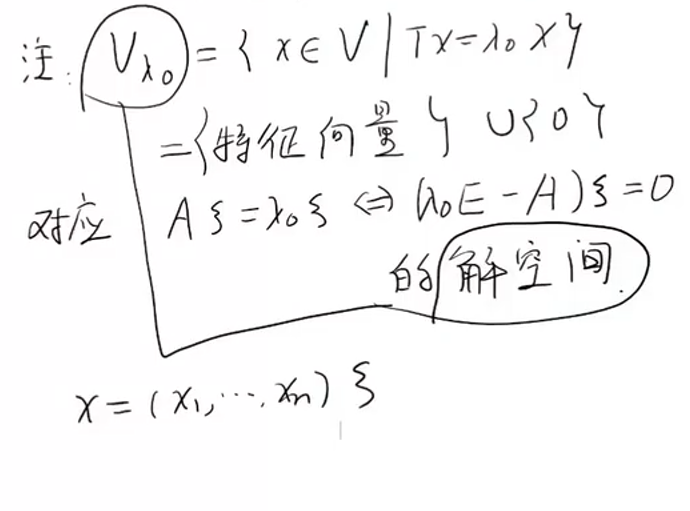 注: V_{λ₀} = { x ∈ V | Tx = λ₀x }
= { 特征向量 } ∪ {0}
对应 Aξ = λ₀ξ ⇔ (λ₀E - A)ξ = 0
的解空间.
x = (x₁, ⋯, xₙ) ξ